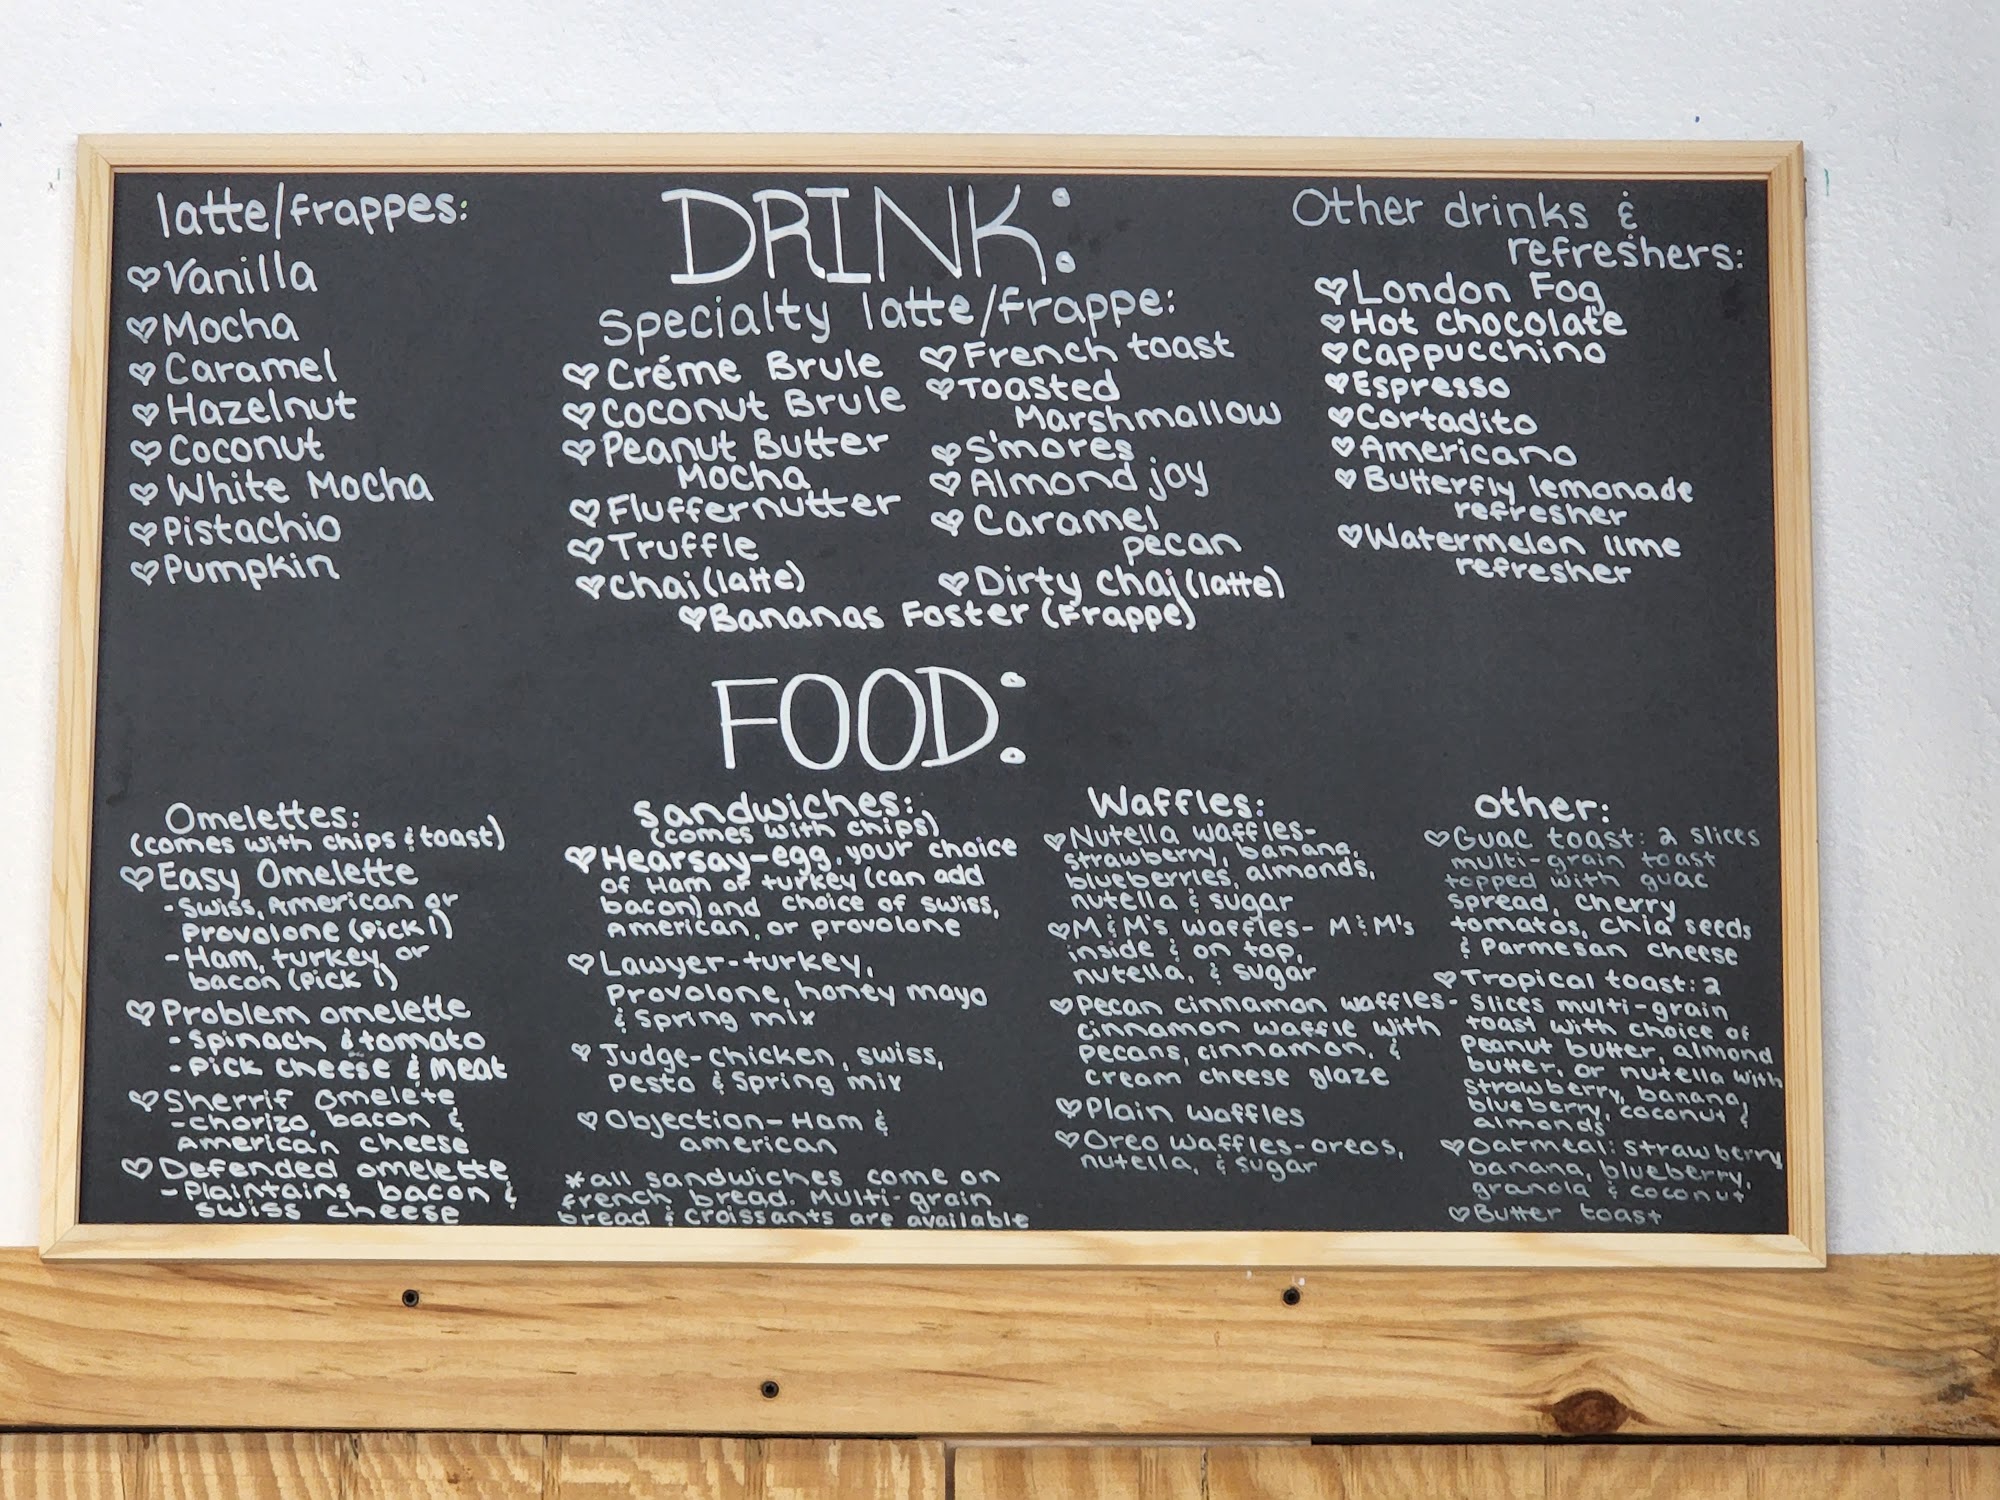 latte/frappes:
Vanilla
Mocha
Caramel
Hazelnut
Coconut
White Mocha
Pistachio
Pumpkin
DRINK:
Specialty latte/frappe:
Créme Brule
Coconut Brule
Peanut Butter
Mocha
Fluffernutter
Truffle
Chai (latte)
French toast
Toasted
Marshmallow
S'mores
Almond joy
Caramel
pecan
Dirty Chai (latte)
Bananas Foster (Frappe)
Other drinks &
refreshers:
London Fog
Hot chocolate
Cappucchino
Espresso
Cortadito
Americano
Butterfly lemonade
refresher
Watermelon lime
refresher
FOOD:
Omelettes:
(comes with chips & toast)
Easy Omelette
- Swiss, American or
Provolone (pick 1)
- Ham, turkey, or
bacon (pick 1)
Problem omelette
- Spinach & tomato
- Pick cheese & meat
Sherrif omelete
- chorizo, bacon &
American cheese
Defended omelette
- Plaintains bacon &
swiss cheese
Sandwiches:
(comes with chips)
Hearsay-egg, your choice
of Ham or turkey (can add
bacon) and choice of swiss,
American, or provolone
Lawyer-turkey,
Provolone, honey mayo
& Spring mix
Judge-chicken, swiss,
pesto & Spring mix
Objection- Ham &
american
*all sandwiches come on
french bread. Multi-grain
bread & croissants are available
Waffles:
Nutella waffles-
strawberry, banana,
blueberries, almonds,
nutella & sugar
M&M's waffles- M&M's
inside & on top,
nutella, & sugar
Pecan cinnamon waffles-
cinnamon waffle with
pecans, cinnamon, &
cream cheese glaze
Plain waffles
Oreo waffles-oreos,
nutella, & sugar
other:
Guac toast: 2 slices
multi-grain toast
topped with guac
spread, cherry
tomatos, chia seeds
& Parmesan cheese
Tropical toast: 2
slices multi-grain
toast with choice of
peanut butter, almond
butter, or nutella with
strawberry, banana,
blueberry, coconut &
almonds
Oatmeal: strawberry
banana, blueberry,
granola & coconut
Butter toast